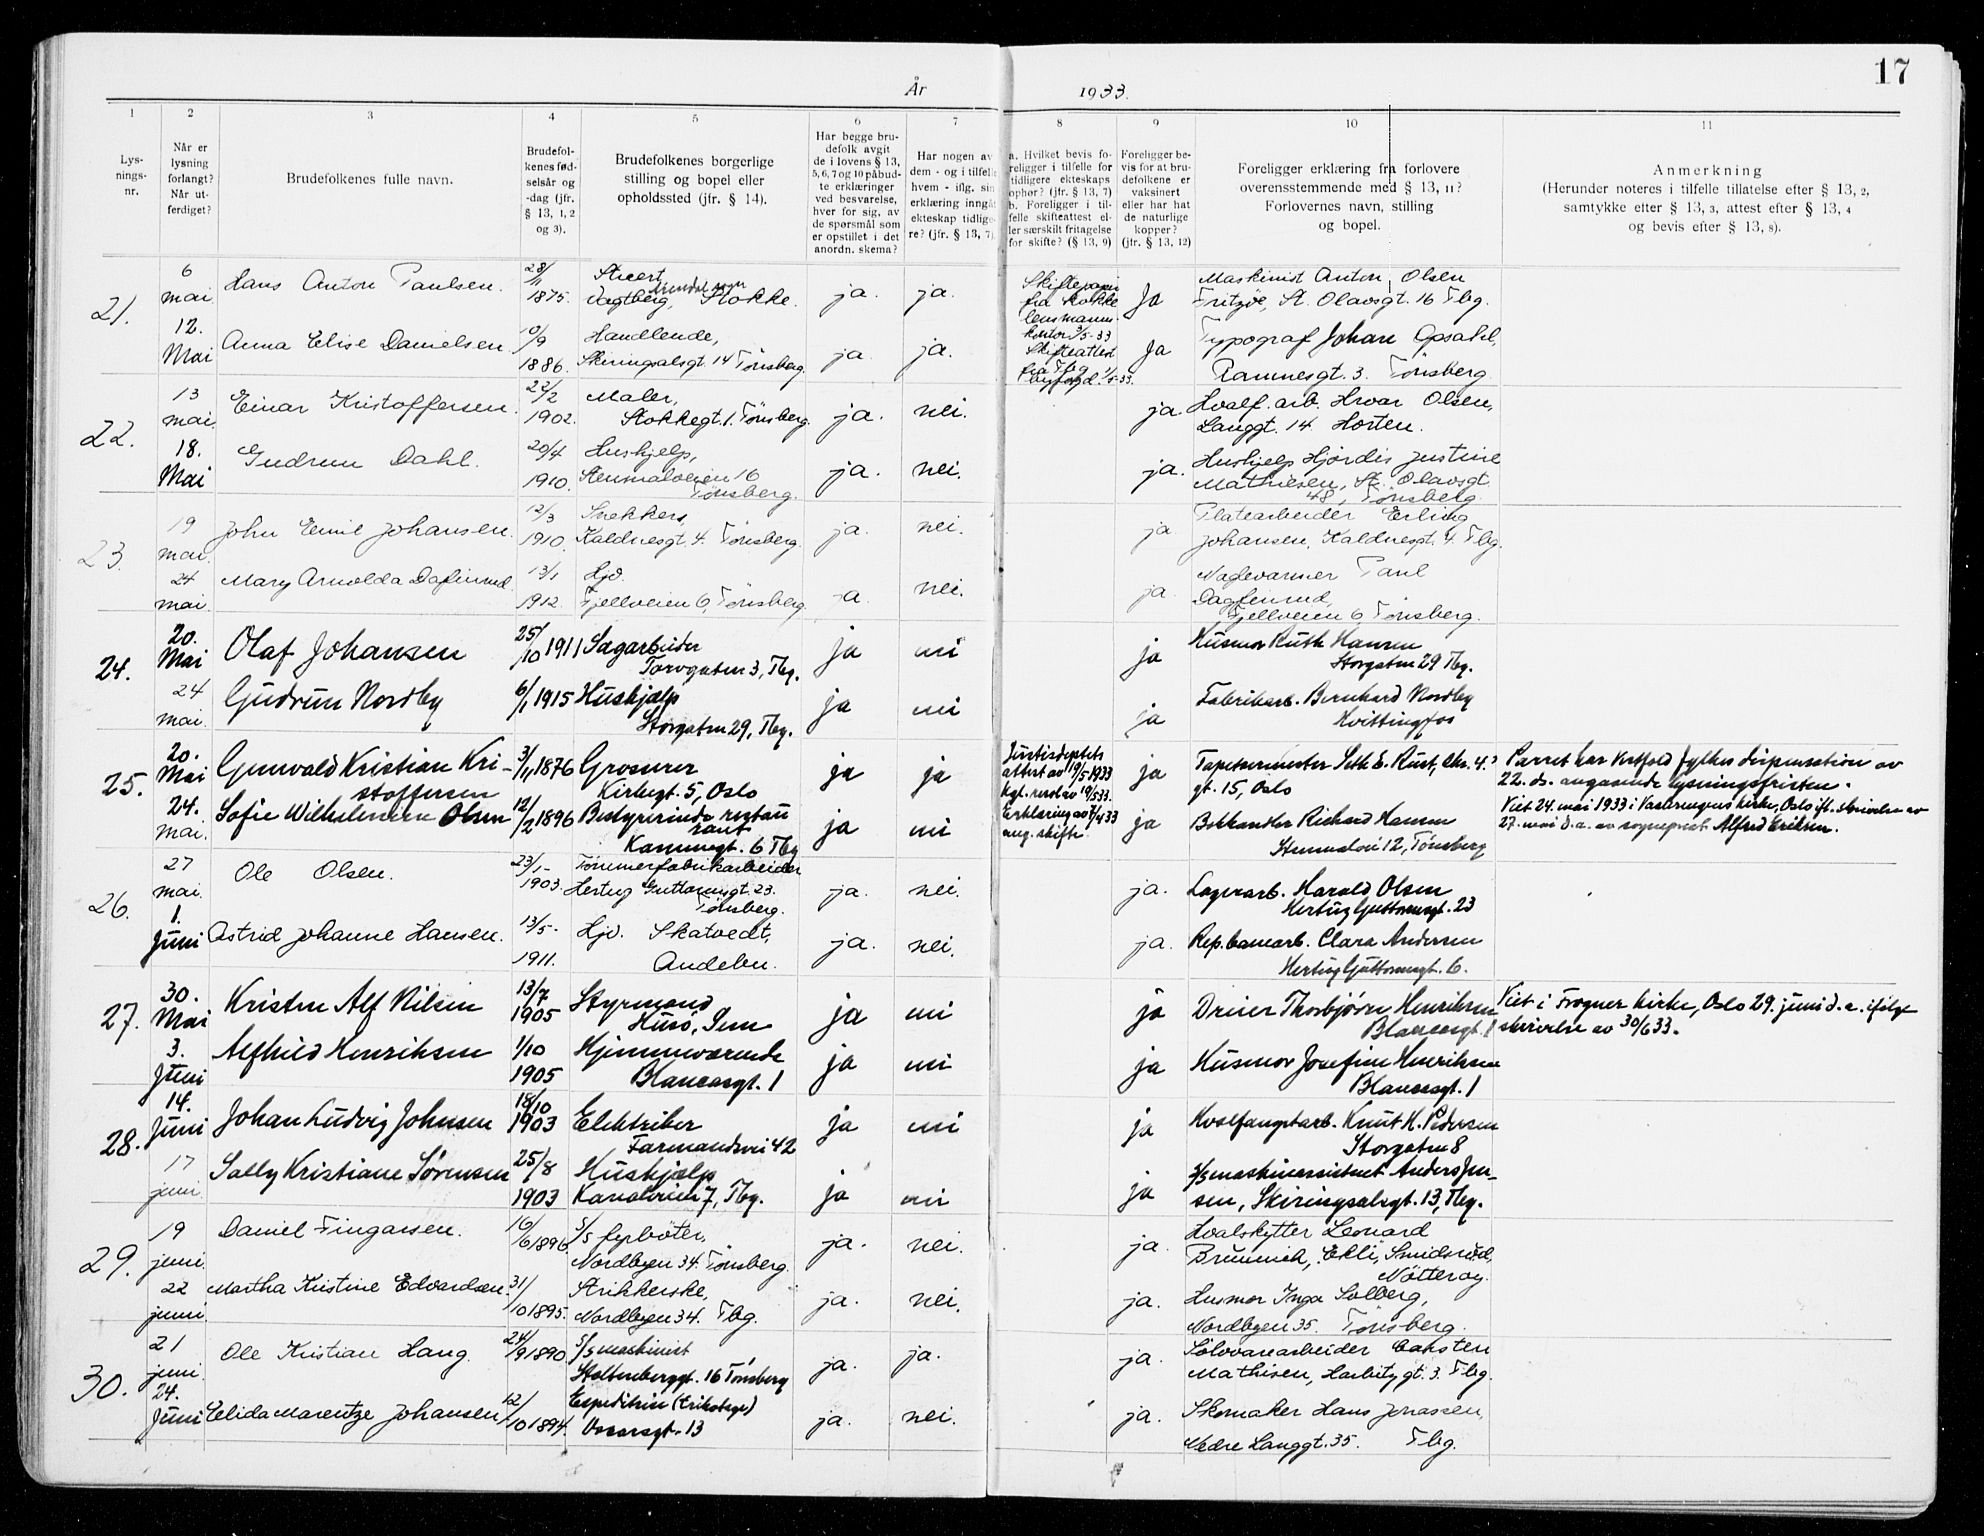 17
År 1933.
1
Lys-
nings-
nr.
2
Når er
lysning
forlangt?
Når ut-
ferdiget?
3
Brudefolkenes fulle navn.
4
Brudefol-
kenes fød-
selsår og
-dag (jfr.
§ 13, 1, 2
og 3).
5
Brudefolkenes borgerlige
stilling og bopel eller
opholdssted (jfr. § 14).
6
Har begge bru-
defolk avgit
de i lovens § 13,
5, 6, 7 og 10 påbud-
te erklæringer
ved besvarelse,
hver for sig, av
de spørsmål som
er opstillet i det
anordn. skema?
7
Har nogen av
dem - og i tilfelle
hvem - iflg. sin
erklæring inngåt
ekteskap tidlige-
re? (jfr. § 13, 7)
8
a. Hvilket bevis fo-
religger i tilfelle for
tidligere ekteskaps
ophør? (jfr. § 13, 7)
b. Foreligger i til-
felle skifteattest el-
ler særskilt fritagelse
for skifte? (§ 13, 9)
9
Foreligger be-
vis for at bru-
defolkene er
vaksinert
eller har hat
de naturlige
kopper?
(jfr. § 13, 12)
10
Foreligger erklæring fra forlovere
overensstemmende med § 13, 11?
Forlovernes navn, stilling
og bopel.
11
Anmerkning
(Herunder noteres i tilfelle tillatelse efter § 13, 2,
samtykke efter § 13, 3, attest efter § 13, 4
og bevis efter § 13, 8).
21.
6
mai
Hans Anton Paulsen.
28/11
1875.
Stuert
Vagtberg, Stokke.
ja.
ja.
Skiftepapir
fra Stokke
lensmanns-
kontor 3/5-33
Ja
Maskinist Anton Olsen
Fritzøe, St. Olavsgt. 16 Tbg.
12.
Mai
Anna Elise Danielsen
10/9
1886.
Handlende,
Skiringsalsgt. 14 Tønsberg.
ja.
ja.
Skifteattest
fra Tbg
byfogd
Ja
Typograf Johan Opsahl,
Ramnesgt. 3. Tønsberg.
22.
13
mai.
Einar Kristoffersen.
22/2
1902.
Maler,
Stokkegt. 1. Tønsberg.
ja.
nei.
ja
Hvalf. arb. Hroar Olsen,
Langgt. 14 Horten.
18.
Mai
Gudrun Dahl.
20/4
1910.
Hushjelp,
Stenmalveien 16
Tønsberg.
ja.
nei.
ja.
Hushjelp Hjørdis Justine
Mathisen, St. Olavsgt
48, Tønsberg.
23.
19
mai.
John Emil Johansen.
12/3
1910.
Snekker,
Kaldnesgt. 4. Tønsberg.
ja
nei.
ja
Platearbeider Erling
Johansen, Kaldnesgt. 4. Tbg.
24
mai.
Mary Arnolda Dafinrud.
13/1
1912.
Hjv.
Fjellveien 6, Tønsberg.
ja.
nei.
ja.
Naglevarmer Paul
Dagfinrud,
Fjellveien 6 Tønsberg.
24.
20.
Mai
Olaf Johansen
25/10 1911
Sagarbeider
Torvgaten 3, Tbg.
ja
nei
ja
Husmor Ruth Hansen
Storgaten 29 Tbg.
24
mai.
Gudrun Nordby
6/1 1915
Hushjælp
Storgaten 29, Tbg.
ja
nei
ja
Fabrikarb. Bernhard Nordby
Hvittingfos
25.
20.
Mai
Gunvald Kristian Kri-
stoffersen
3/11 1876
Grosserer
Kirkegt. 5, Oslo
ja
ja
Justisdeptets
attest av 19/5 1933
Kgl. resol av 19/5 33.
ja
Tapetsermester Seth E. Rust, Eks. 4.
gt. 15, Oslo
Parret har Vestfold fylkes dispensation av
22. ds. angaaende lysningsfristen.
24.
mai.
Sofie Wilhelmine Olsen
12/2 1896
Bestyrerinde restau
rant
Kammegt. 6 Tbg
ja
nei
Erklæring av 7/4 33
ang. skifte
ja
Bokhandler Richard Hansen
Stenmalvei 12, Tønsberg
Viet 24. mai 1933 i Vaalerengens kirke, Oslo ifl. skrivelse av
27. mai d.a. av sogneprest Alfred Eriksen.
26.
27
mai.
Ole Olsen.
23/1-
1903.
Tømmerfabrikarbeider
Hertug Guttormsgt. 23.
Tønsberg.
ja.
nei.
ja.
Lagerarb. Harald Olsen
Hertug Guttormsgt. 23
1.
Juni
Astrid Johanne Hansen.
13/5-
1911.
Hjv. Skatvedt,
Andebu.
ja.
nei.
ja.
Rep. banearb. Clara Andersen
Hertug Guttormsgt. 6.
27.
30.
Mai
Kristen Alf Nilsen
13/7
1905
Styrmand
Husø, Sem
ja
nei
ja
Dreier Thorbjørn Henriksen
Blancasgt. 1
Viet i Frogner kirke, Oslo 29. juni d.a. ifølge
skrivelse av 30/6 33.
3.
Juni
Alfhild Henriksen
1/10
1905
Hjemmeværende
Blancasgt. 1
ja
nei
ja
Husmor Josefine Henriksen
Blancasgt. 1
28.
14.
Juni
Johan Ludvig Johnsen
18/10
1903
Elektriker
Farmandsvei 42
ja
nei
ja
Hvalfangstarb. Knut K. Pedersen
Storgaten 8
17
juni.
Sally Kristiane Sørensen
25/8
1903
Hushjælp
Kanalveien 7, Tbg.
ja
nei
ja
s/s maskinassistent Anders Jen-
sen, Skiringsalsgt. 13, Tbg.
29.
19
juni.
Daniel Fingarsen.
16/6 1896.
s/s fyrbøter,
Nordbyen 34. Tønsberg.
ja.
nei.
ja.
Hvalskytter Leonard
Brummick, Ekli, Smidsrød,
Nøtterøy.
22
juni.
Martha Kristine Edvardsen.
31/10 1895.
Strikkerske,
Nordbyen 34. Tbg.
ja.
nei.
ja.
Husmor Inga Solberg,
Nordbyen 35. Tønsberg.
30.
21
juni.
Ole Kristian Haug.
24/9 1890
s/s maskinist
Stoltenberggt. 16 Tønsberg
ja.
ja.
ja.
Sølvvarearbeider Carsten
Mathisen, Harbitz gt. 3. Tbg.
24.
Juni
Elida Marentze Johansen
12/10 1894.
Expeditrise (trikotage)
ja.
nei.
ja.
Skomaker Hans Jonassen,
Nedre Langgt. 35. Tbg.